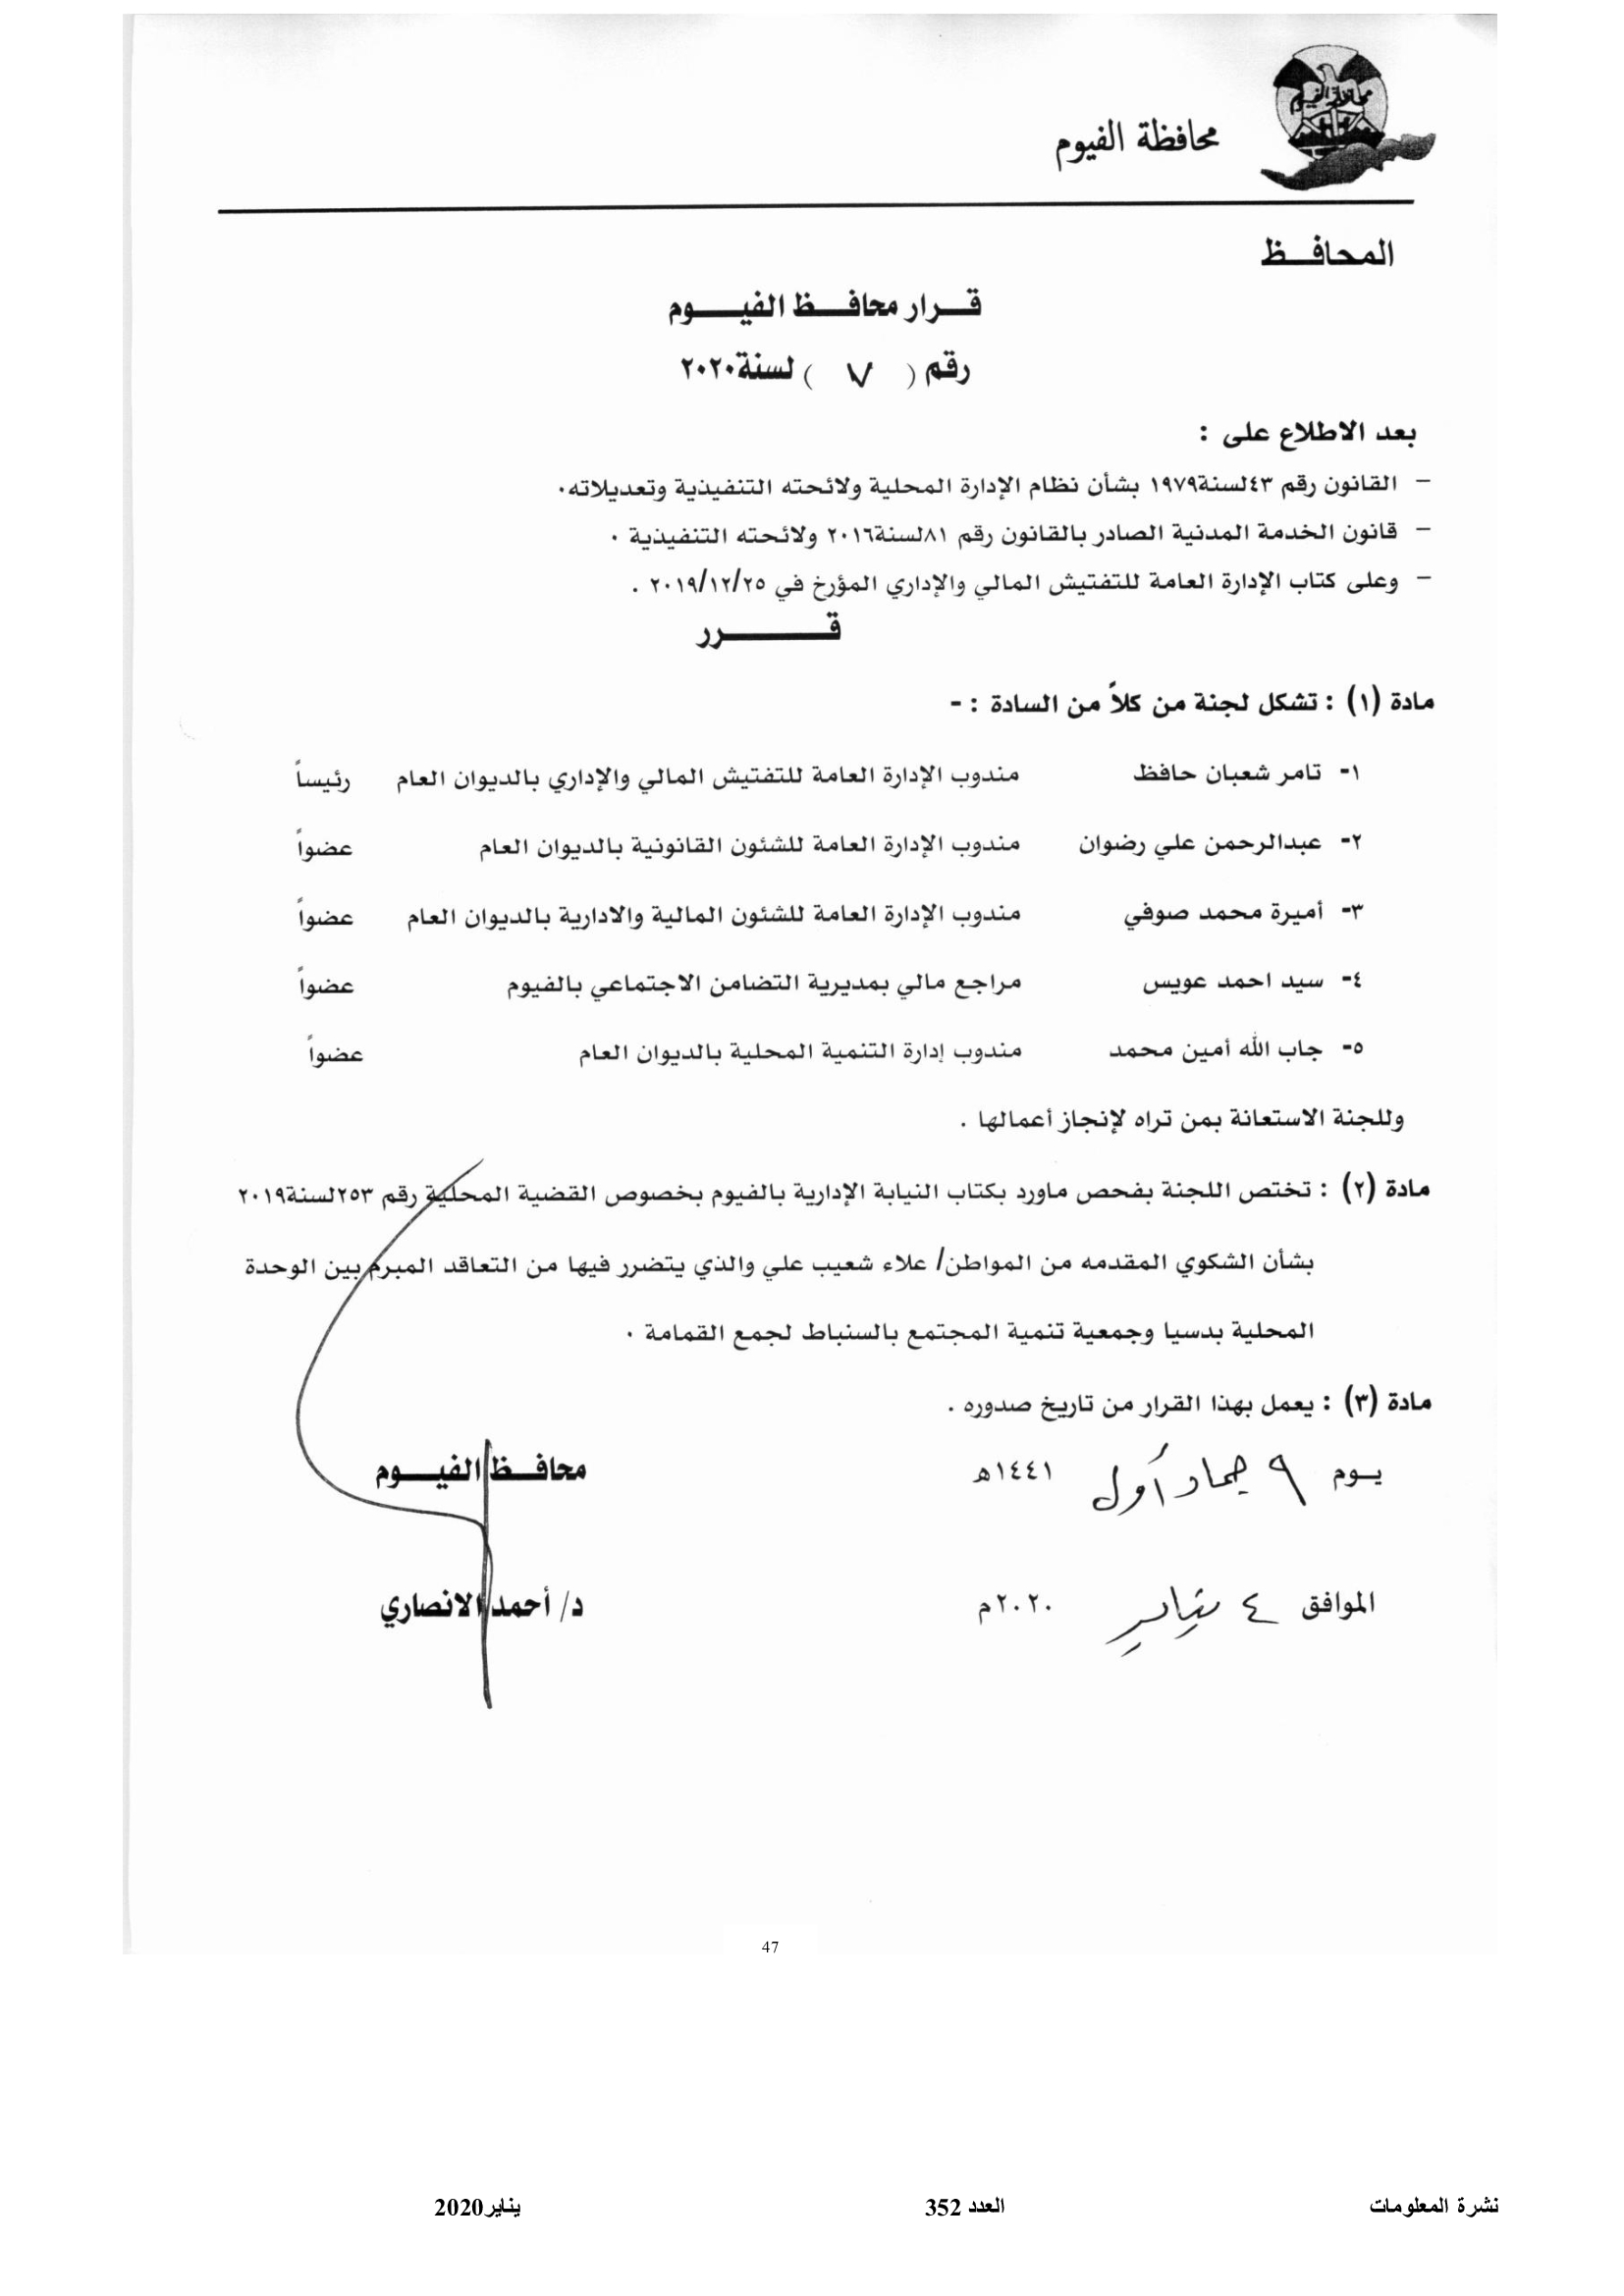 محافظة الفيوم
محافظة الفيوم
المحافــظ
قــرار محافــظ الفيــوم
رقم ( ٧ ) لسنة٢٠٢٠
بعد الاطلاع على :
– القانون رقم ٤٣لسنة١٩٧٩ بشأن نظام الإدارة المحلية ولائحته التنفيذية وتعديلاته٠
– قانون الخدمة المدنية الصادر بالقانون رقم ٨١لسنة٢٠١٦ ولائحته التنفيذية ٠
– وعلى كتاب الإدارة العامة للتفتيش المالي والإداري المؤرخ في ٢٠١٩/١٢/٢٥ .
قـــــرر
مادة (١) : تشكل لجنة من كلاً من السادة : -
١- تامر شعبان حافظ مندوب الإدارة العامة للتفتيش المالي والإداري بالديوان العام رئيساً
٢- عبدالرحمن علي رضوان مندوب الإدارة العامة للشئون القانونية بالديوان العام عضواً
٣- أميرة محمد صوفي مندوب الإدارة العامة للشئون المالية والادارية بالديوان العام عضواً
٤- سيد احمد عويس مراجع مالي بمديرية التضامن الاجتماعي بالفيوم عضواً
٥- جاب الله أمين محمد مندوب إدارة التنمية المحلية بالديوان العام عضواً
وللجنة الاستعانة بمن تراه لإنجاز أعمالها .
مادة (٢) : تختص اللجنة بفحص ماورد بكتاب النيابة الإدارية بالفيوم بخصوص القضية المحلية رقم ٢٥٣لسنة٢٠١٩
بشأن الشكوي المقدمه من المواطن/ علاء شعيب علي والذي يتضرر فيها من التعاقد المبرم بين الوحدة
المحلية بدسيا وجمعية تنمية المجتمع بالسنباط لجمع القمامة ٠
مادة (٣) : يعمل بهذا القرار من تاريخ صدوره .
يـوم ٩ جماد أول ١٤٤١هـ محافــظ الفيــوم
الموافق ٤ يناير ٢٠٢٠م د/ أحمد الانصاري
47
نشرة المعلومات العدد 352 يناير2020